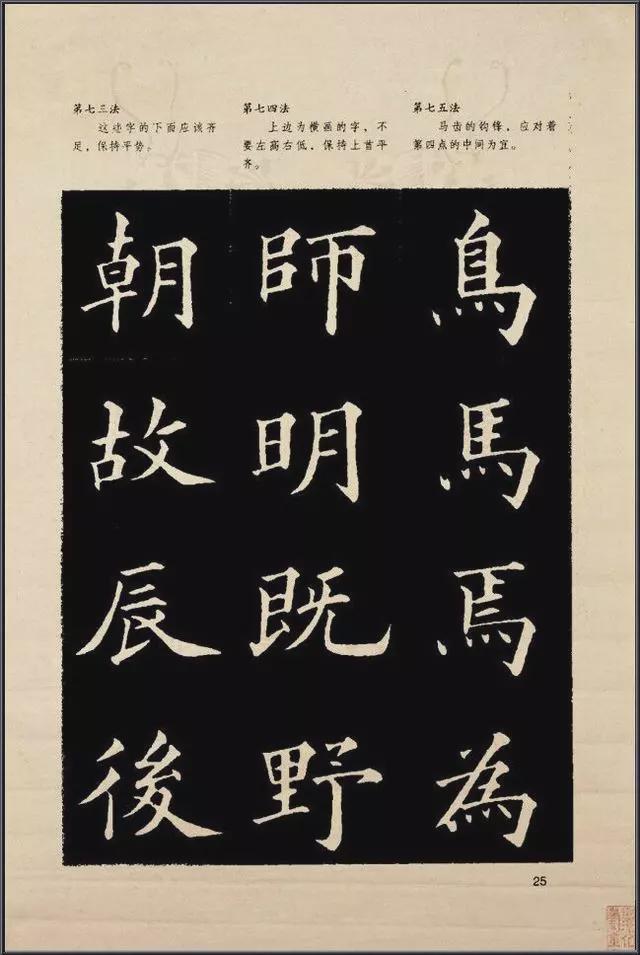 第七三法
这些字的下面应该齐
足，保持平势。
第七四法
上边为横画的字，不
要左高右低，保持上首平
齐。
第七五法
马齿的钩锋，应对着
第四点的中间为宜。
朝 師 鳥
故 明 馬
辰 既 焉
後 野 為
25